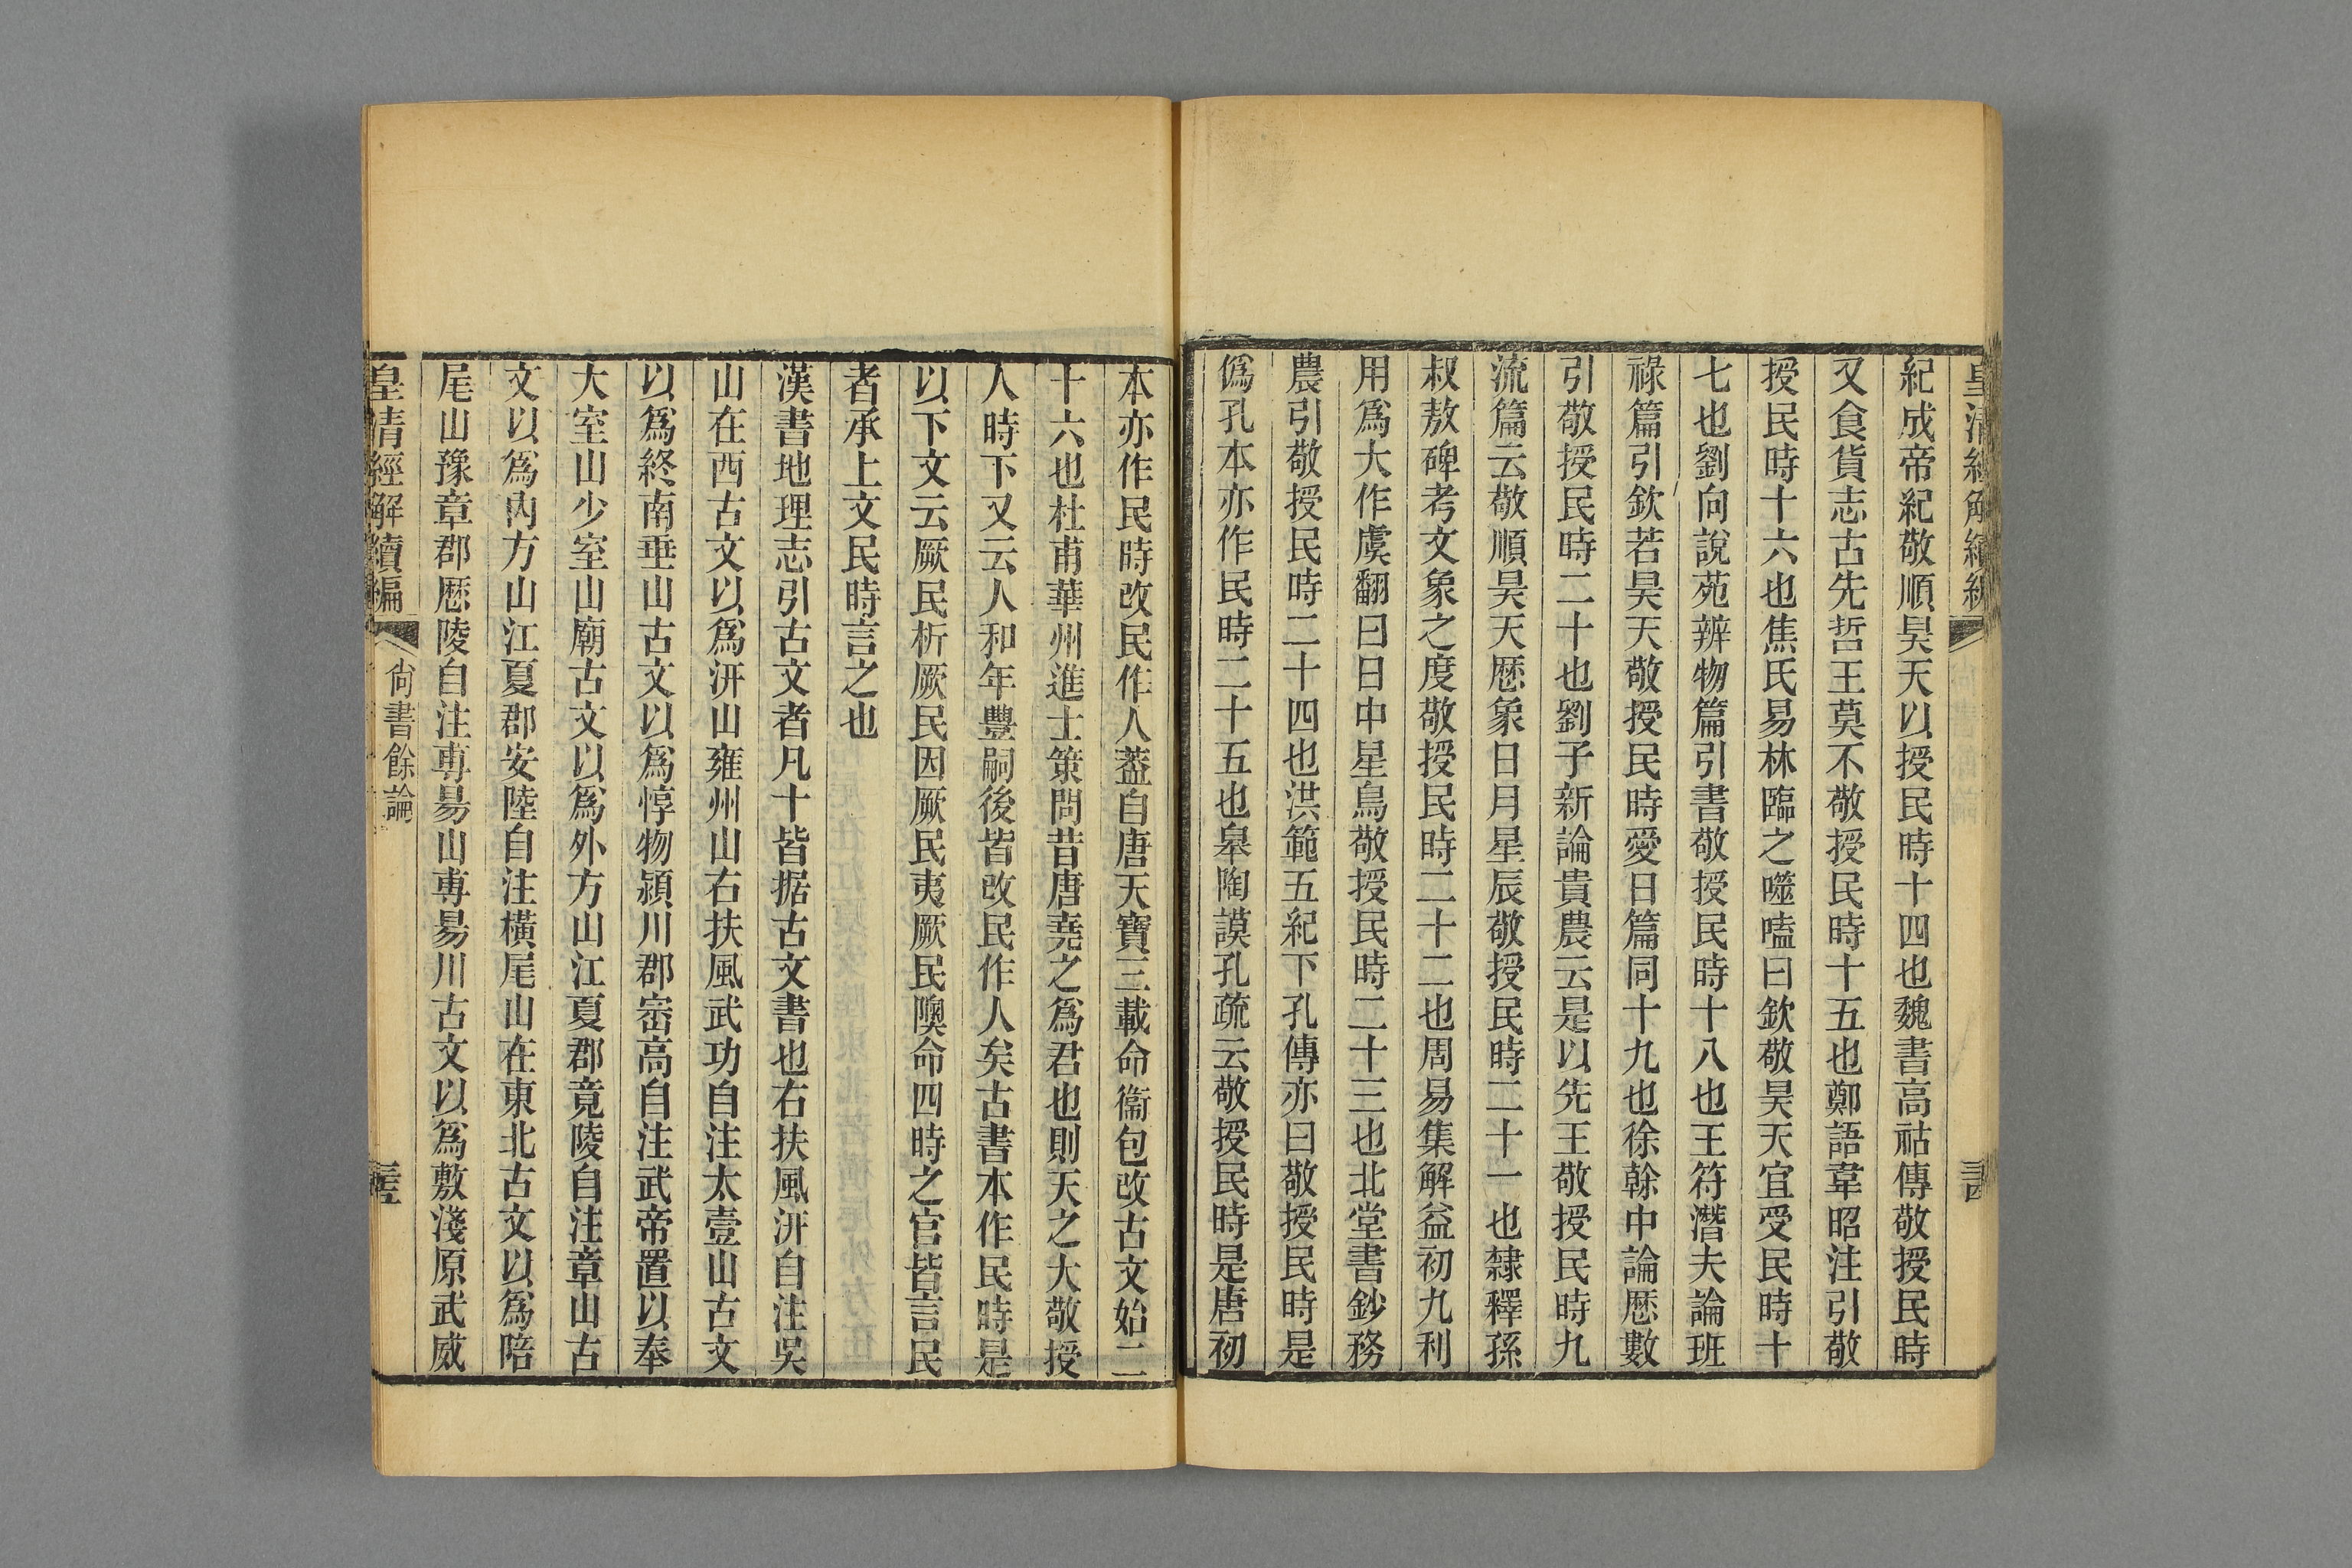 皇清經解續編
紀成帝紀敬順昊天以授民時十四也魏書高祜傳敬授民時
又食貨志古先哲王莫不敬授民時十五也鄭語韋昭注引敬
授民時十六也焦氏易林臨之噬嗑曰欽敬昊天宜受民時十
七也劉向說苑辨物篇引書敬授民時十八也王符潛夫論班
祿篇引欽若昊天敬授民時愛日篇同十九也徐榦中論厯數
引敬授民時二十也劉子新論貴農云是以先王敬授民時九
流篇云敬順昊天厯象日月星辰敬授民時二十一也隸釋孫
叔敖碑考文象之度敬授民時二十二也周易集解益初九利
用爲大作虞翻曰日中星鳥敬授民時二十三也北堂書鈔務
農引敬授民時二十四也洪範五紀下孔傳亦曰敬授民時是
僞孔本亦作民時二十五也皋陶謨孔疏云敬授民時是唐初
本亦作民時改民作人葢自唐天寶三載命衞包改古文始二
十六也杜甫華州進士策問昔唐堯之爲君也則天之大敬授
人時下又云人和年豐嗣後皆改民作人矣古書本作民時是
以下文云厥民析厥民因厥民夷厥民隩命四時之官皆言民
者承上文民時言之也
漢書地理志引古文者凡十皆据古文書也右扶風汧自注吳
山在西古文以爲汧山雍州山右扶風武功自注太壹山古文
以爲終南垂山古文以爲惇物潁川郡崈高自注武帝置以奉
大室山少室山廟古文以爲外方山江夏郡竟陵自注章山古
文以爲內方山江夏郡安陸自注橫尾山在東北古文以爲陪
尾山豫章郡厯陵自注尃昜山尃昜川古文以爲敷淺原武威
皇清經解續編
尙書餘論